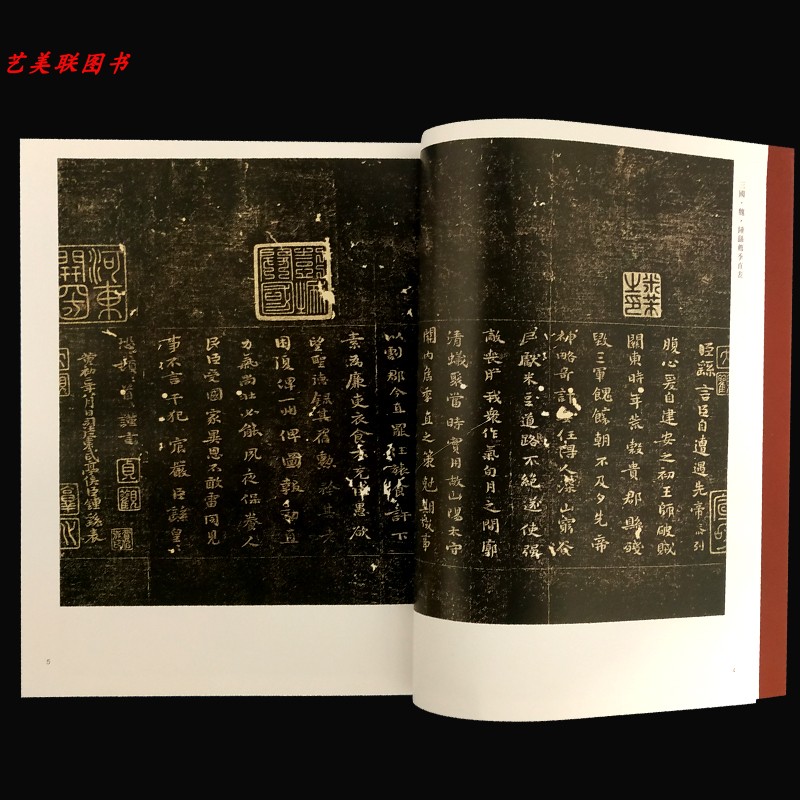 艺美联图书
三國·魏·鍾繇薦季直表
臣繇言臣自遭遇先帝忝列
腹心爰自建安之初王師破賊
關東時年荒穀貴郡縣殘
毀三軍餽饟朝不及夕先帝
神略奇計委任得人深山窮谷
民獻米豆道路不絕遂使強
敵喪膽我眾作氣旬月之間廓
清蟻聚當時實用故山陽太守
關內侯季直之策剋期成事
以劇郡今直罷任旅食許下
素為廉吏衣食不充臣愚欲
望聖德錄其舊勳矜其老
困復俾一州俾圖報効直
力氣尚壯必能夙夜保養人
民臣受國家異恩不敢雷同見
事不言干犯宸嚴臣繇皇
頓首謹言
黃初二年八月日司徒東武亭侯臣鍾繇表
貞觀
河東
5